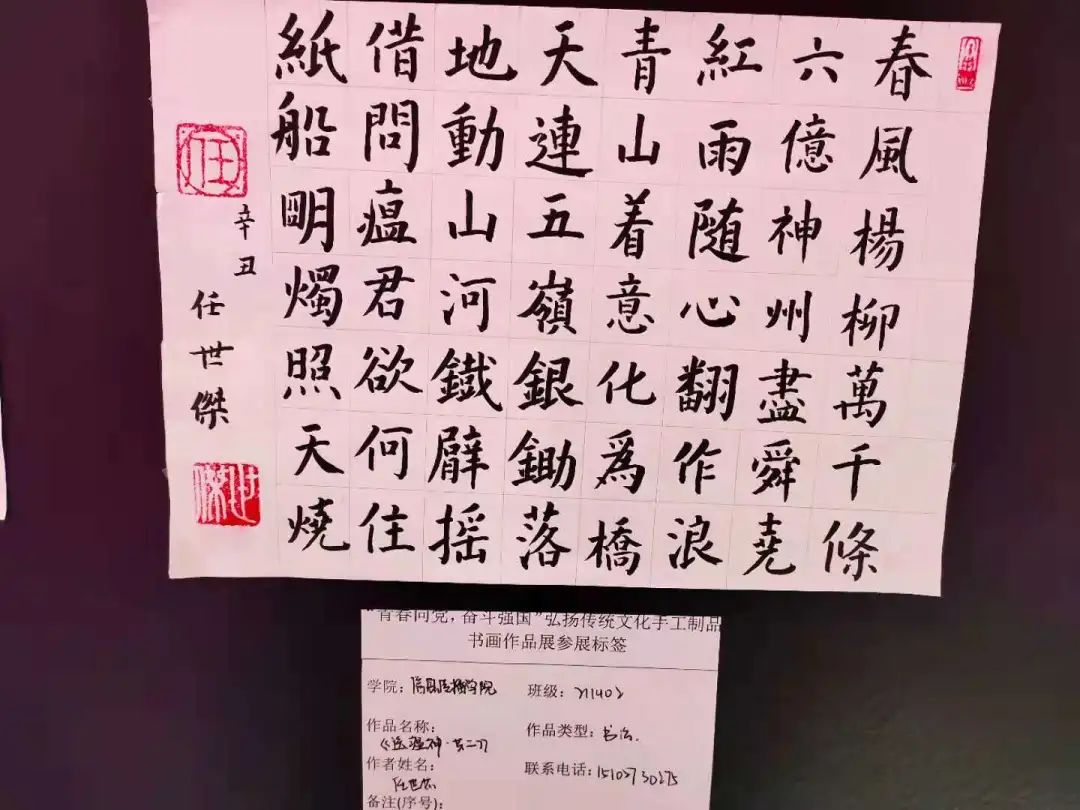 春風楊柳萬千條
六億神州盡舜堯
紅雨随心翻作浪
青山着意化爲橋
天連五嶺銀鋤落
地動山河鐵臂摇
借問瘟君欲何住
紙船明燭照天燒
辛丑
任世傑
任
世傑
“青春向党，奋斗强国”弘扬传统文化手工制品
书画作品展参展标签
学院：信息传播学院
班级：21402
作品名称：
《送瘟神·其二》
作品类型：书法.
作者姓名：
任世杰
联系电话：
备注(序号)：